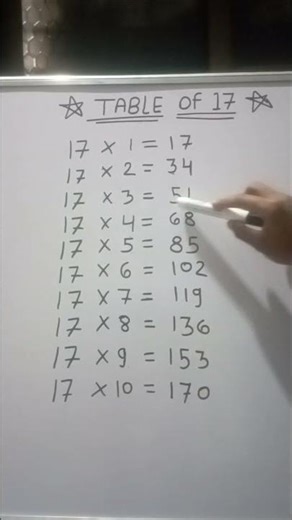 ☆ TABLE OF 17 ☆
17 × 1 = 17
17 × 2 = 34
17 × 3 = 51
17 × 4 = 68
17 × 5 = 85
17 × 6 = 102
17 × 7 = 119
17 × 8 = 136
17 × 9 = 153
17 × 10 = 170